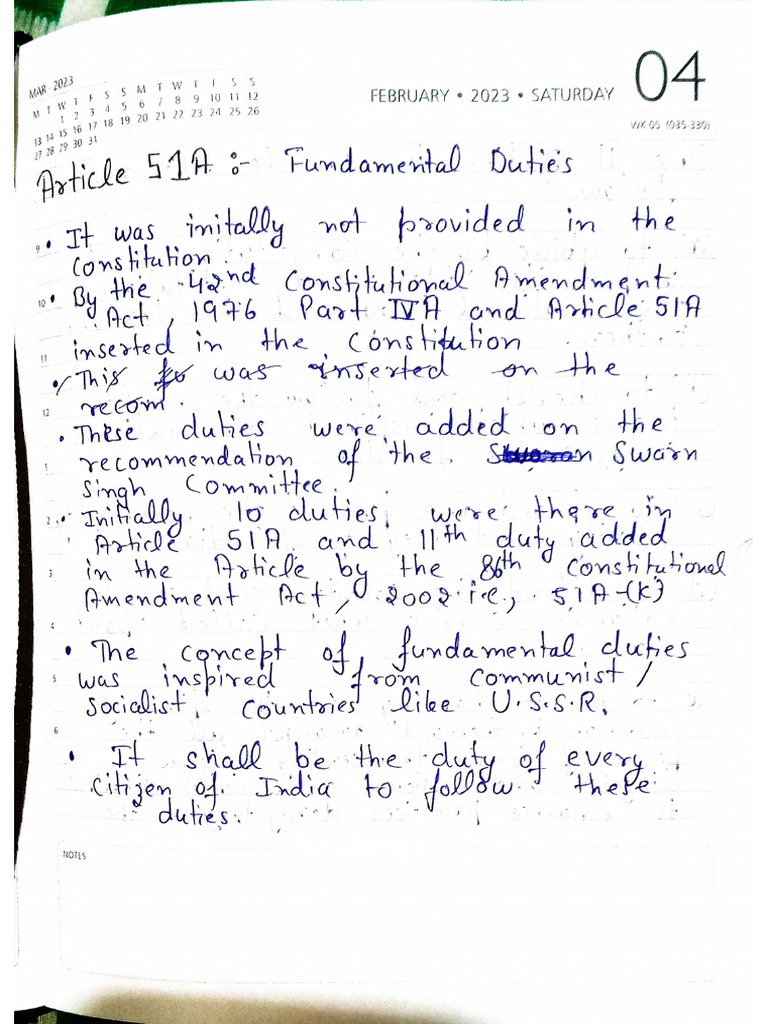 MAR 2023
M T W T F S S M T W T F S S
1 2 3 4 5 6 7 8 9 10 11 12
13 14 15 16 17 18 19 20 21 22 23 24 25 26
27 28 29 30 31
FEBRUARY • 2023 • SATURDAY
04
WK 05 (035-330)
Article 51A :- Fundamental Duties
9 • It was initally not provided in the
Constitution.
10 • By the 42nd Constitutional Amendment
Act, 1976 Part IVA and Article 51A
11 inserted in the Constitution
• This was inserted on the
12 recom.
• These duties were added on the
1 recommendation of the Swarn
Singh Committee.
2 • Initially 10 duties were there in
Article 51A and 11th duty added
3 in the Article by the 86th Constitutional
Amendment Act, 2002 i.e., 51A-(K)
4
• The concept of fundamental duties
5 was inspired from Communist/
Socialist Countries like U.S.S.R.
6
• It shall be the duty of every
citizen of India to follow these
duties.
NOTES